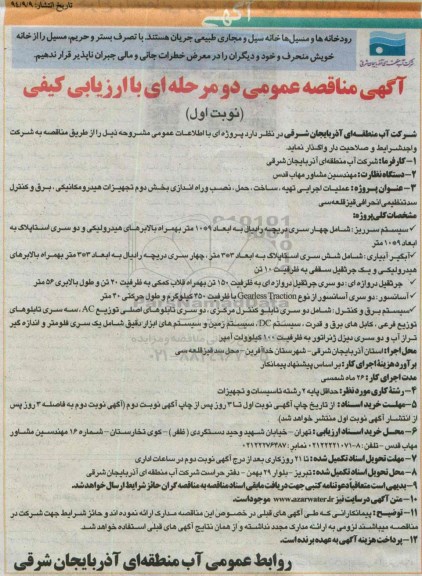 آگهی
تاریخ انتشار: ۹۴/۹/۹
رودخانه ها و مسیل ها خانه سیل و مجاری طبیعی جریان هستند. با تصرف بستر و حریم، مسیل را از خانه
خویش منحرف و خود و دیگران را در معرض خطرات جانی و مالی جبران ناپذیر قرار ندهیم.
آگهی مناقصه عمومی دو مرحله ای با ارزیابی کیفی
(نوبت اول)
شرکت آب منطقه‌ای آذربایجان شرقی در نظر دارد پروژه ای با اطلاعات عمومی مشروحه ذیل را از طریق مناقصه به شرکت
واجد شرایط و صلاحیت دار واگذار نماید
۱- کارفرما: شرکت آب منطقه‌ای آذربایجان شرقی
۲- دستگاه نظارت: مهندسین مشاور مهاب قدس
۳- عنوان پروژه: عملیات اجرایی تهیه، ساخت، حمل، نصب و راه اندازی بخش دوم تجهیزات هیدرومکانیکی، برق و کنترل
سد تنظیمی انحرافی قیزقلعه سی
مشخصات کلی پروژه:
سیستم سرریز: شامل چهار سری دریچه رادیال به ابعاد ۹×۱۰ متر بهمراه بالابرهای هیدرولیکی و دو سری استاپلاگ به
ابعاد ۹×۱۰ متر
آبگیر آبیاری: شامل شش سری استاپلاگ به ابعاد ۳×۳ متر، چهار سری دریچه رادیال به ابعاد ۳×۳ متر بهمراه بالابرهای
هیدرولیکی و یک جرثقیل سقفی به ظرفیت ۱۰ تن
جرثقیل دروازه ای: دو سری جرثقیل دروازه ای به ظرفیت ۱۵۰ تن بهمراه قلاب کمکی به ظرفیت ۲۰ تن و طول بالابری ۵۶ متر
آسانسور: دو سری آسانسور از نوع Gearless Traction با ظرفیت ۴۵۰ کیلوگرم و طول حرکتی ۳۰ متر
سیستم برق و کنترل: شامل دو سری تابلو کنترل مرکزی، دو سری تابلوهای اصلی توزیع AC، سه سری تابلوهای
توزیع فرعی، کابل های برق و قدرت، سیستم DC، سیستم زمین و سیستم های ابزار دقیق شامل یک سری فلومتر و اندازه گیر
تراز آب و دو سری دیزل ژنراتور به ظرفیت ۱۰۰ کیلوولت آمپر
محل اجرا: استان آذربایجان شرقی- شهرستان خداآفرین- محل سد قیزقلعه سی
برآورد هزینه اجرای کار: بر اساس پیشنهاد پیمانکار
مدت اجرای کار: ۲۶ ماه شمسی
۴- رشته کاری مورد نظر: حداقل پایه ۲ رشته تاسیسات و تجهیزات
۵- مهلت خرید اسناد: از تاریخ چاپ آگهی نوبت اول تا ۳ روز پس از چاپ آگهی نوبت دوم (آگهی نوبت دوم به فاصله ۳ روز پس
از انتشار آگهی نوبت اول منتشر خواهد شد)
۶- محل خرید اسناد ارزیابی: تهران- خیابان شهید وحید دستگردی (ظفر)- کوی تخارستان- شماره ۱۶ مهندسین مشاور
مهاب قدس- تلفن:
۷- مهلت تحویل اسناد تکمیل شده: تا ۲۱ روز کاری بعد از درج آگهی نوبت دوم در ساعات اداری
۸- محل تحویل اسناد تکمیل شده: تبریز- بلوار ۲۹ بهمن- دفتر حراست شرکت آب منطقه ای آذربایجان شرقی
۹- بدیهی است متعاقبا دعوتنامه کتبی جهت دریافت مابقی اسناد مناقصه به مناقصه گران حائز شرایط ارسال خواهد شد.
۱۰- متن آگهی در سایت نیز www.azarwater.ir موجود است.
۱۱- توضیح: پیمانکارانی که طی آگهی های قبلی در خصوص این مناقصه مدارک ارائه نموده اند و حائز شرایط جهت شرکت در
مناقصه میباشند لزومی به ارائه مدارک مجدد نداشته و از همان نتایج آگهی های قبلی استفاده خواهد شد.
۱۲- پرداخت هزینه آگهی به عهده برنده است.
روابط عمومی آب منطقه‌ای آذربایجان شرقی